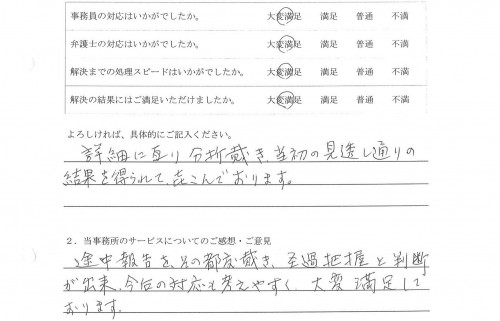 事務員の対応はいかがでしたか。 大変満足 満足 普通 不満
弁護士の対応はいかがでしたか。 大変満足 満足 普通 不満
解決までの処理スピードはいかがでしたか。 大変満足 満足 普通 不満
解決の結果にはご満足いただけましたか。 大変満足 満足 普通 不満
よろしければ、具体的にご記入ください。
詳細に亙り分析戴き、当初の見透し通りの
結果を得られて、㐂こんでおります。
2．当事務所のサービスについてのご感想・ご意見
途中報告を、その都度戴き、至過把握と判断
が出来、今后の対応も考えやすく、大変満足して
おります。